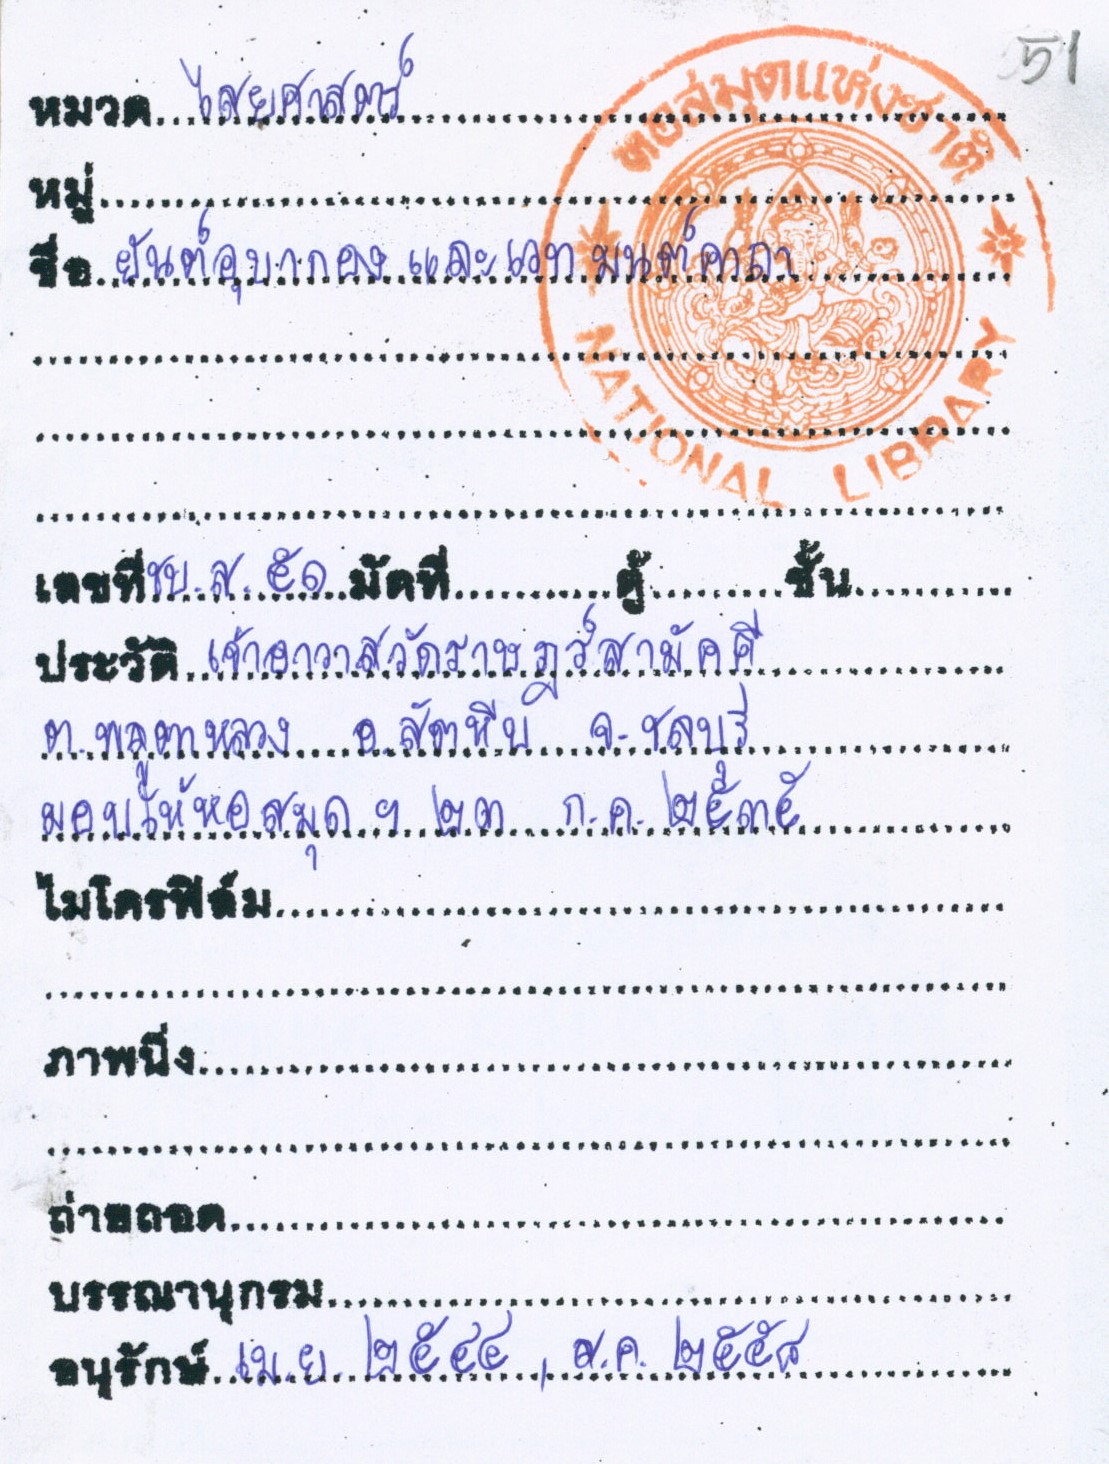 51
หอสมุดแห่งชาติ
NATIONAL LIBRARY
หมวด ไสยศาสตร์
หมู่
ชื่อ ยันต์อุบากอง และเวทมนต์คาถา
เลขที่ ชบ.ส. ๕๑ มัดที่ ตู้ ชั้น
ประวัติ เจ้าอาวาสวัดราษฎร์สามัคคี
ต.พลูตาหลวง อ.สัตหีบ จ.ชลบุรี
มอบให้หอสมุดฯ ๒๓ ก.ค. ๒๕๓๕
ไมโครฟิล์ม
ภาพนิ่ง
ถ่ายถอด
บรรณานุกรม
อนุรักษ์ เม.ย. ๒๕๔๔ , ส.ค. ๒๕๕๘